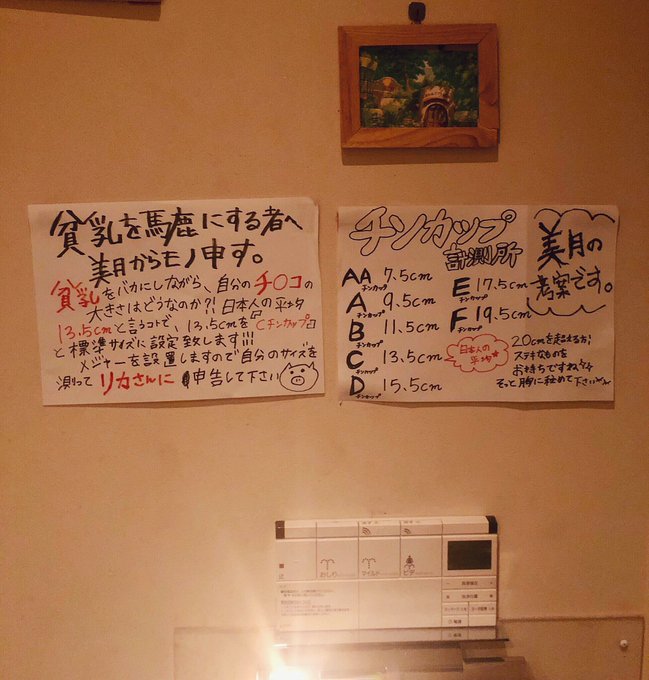 貧乳を馬鹿にする者へ
美月からモノ申す。
貧乳をバカにしながら、自分のチ○コの
大きさはどうなのか?!日本人の平均
13.5cmと言うコトで、13.5cmを『Cチンカップ』
と標準サイズに設定致します!!!
メジャーを設置しますので自分のサイズを
測って リカさんに 申告して下さい
チンカップ
計測所
美月の
考案です。
AA チンカップ 7.5cm
A チンカップ 9.5cm
B チンカップ 11.5cm
C チンカップ 13.5cm
D チンカップ 15.5cm
E チンカップ 17.5cm
F チンカップ 19.5cm
日本人の
平均
20cmを超える方は
ステキなものを
お持ちですね
そっと胸に秘めて下さい
おしり
マイルド
ビデ